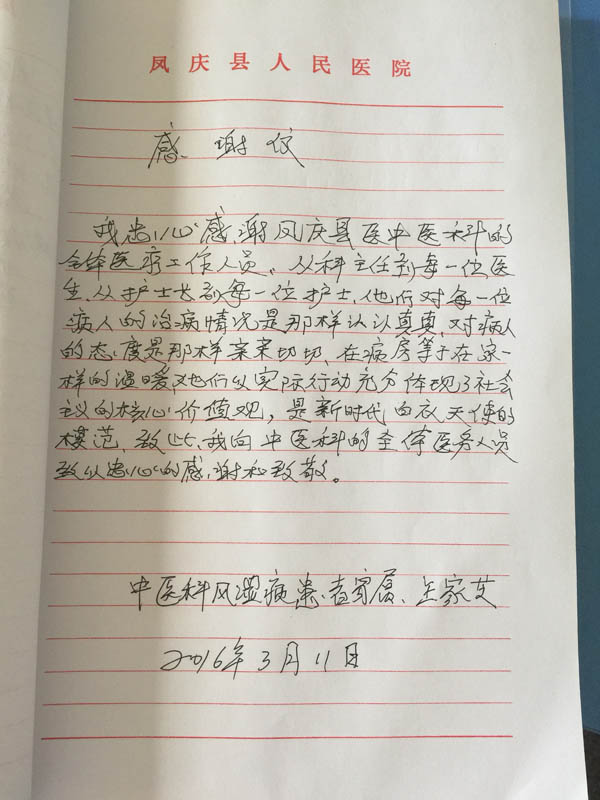 凤庆县人民医院
感谢
我忠心感谢凤庆县医中医科的
全体医疗工作人员、从科主任到每一位医
生、从护士长到每一位护士,他们对每一位
病人的治病情况是那样认认真真,对病人
的态度是那样亲亲切切,在病房等于在家一
样的温暖,他们以实际行动充分体现了社会
主义的核心价值观,是新时代白衣天使的
模范,致此,我向中医科的全体医务人员
致以忠心的感谢和致敬。
中医科风湿病患者家属、王家
2016年3月11日